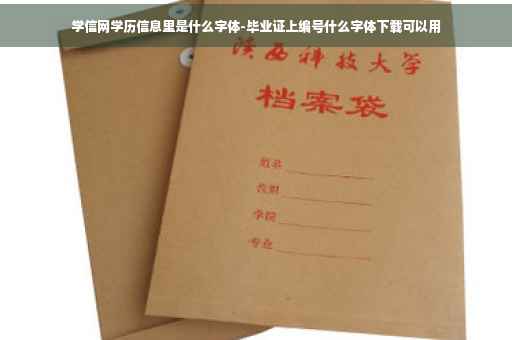 学信网学历信息里是什么字体-毕业证上编号什么字体下载可以用
陕西科技大学
档案袋
姓名
学院
专业